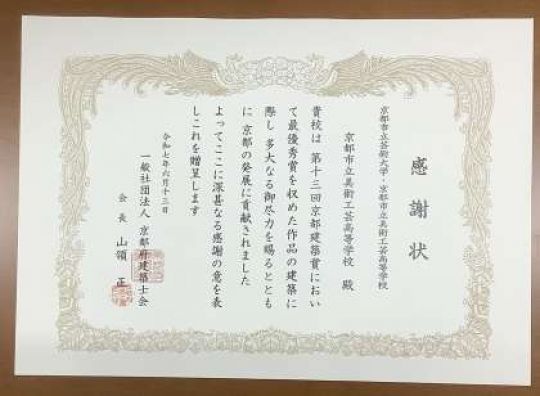 感謝状
京都市立芸術大学・京都市立美術工芸高等学校
京都市立美術工芸高等学校 殿
貴校は 第十三回京都建築賞におい
て最優秀賞を収めた作品の建築に
際し 多大なる御尽力を賜るととも
に 京都の発展に貢献されました
よってここに深甚なる感謝の意を表
しこれを贈呈します
令和七年六月十三日
一般社団法人 京都府建築士会
会長 山領 正